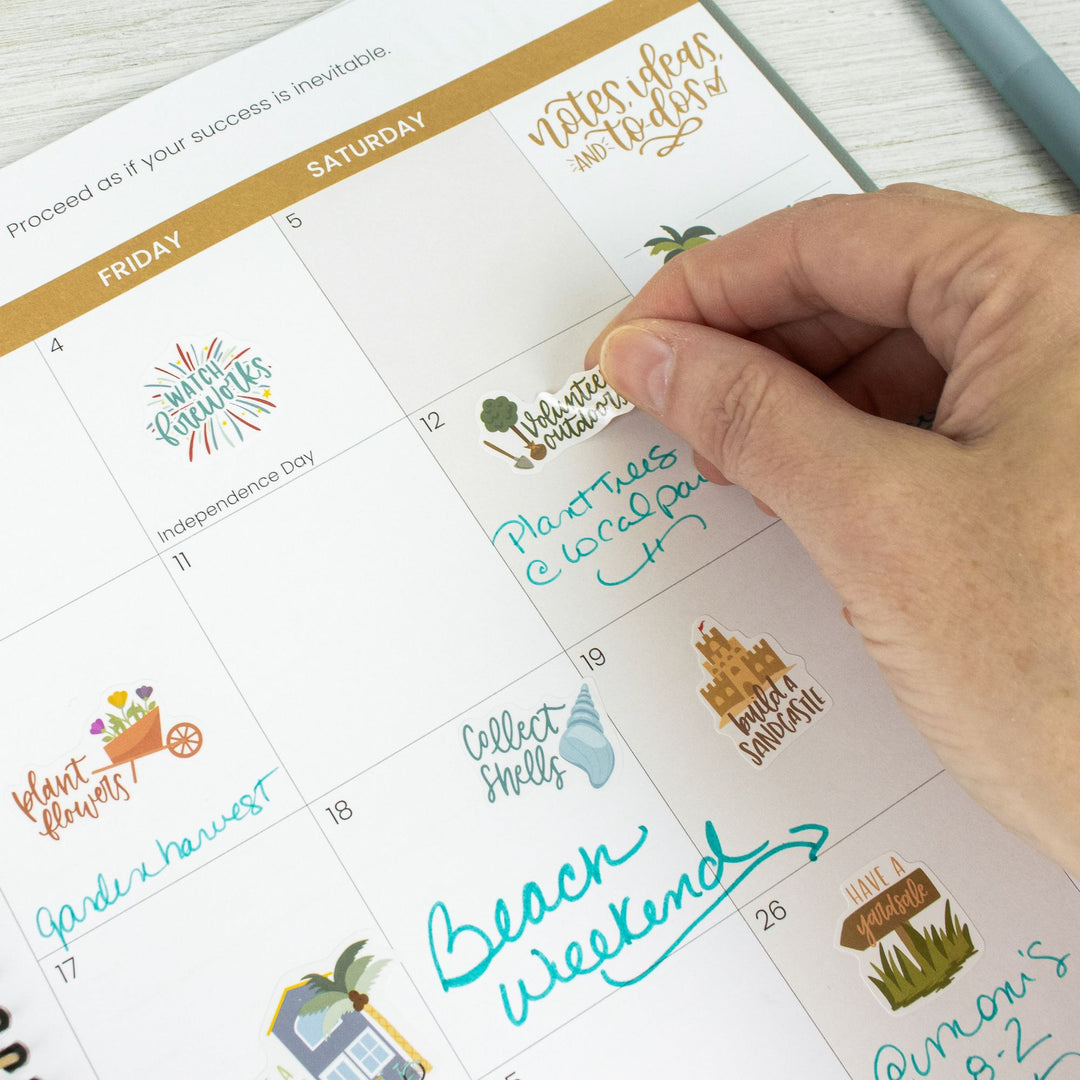 Proceed as if your success is inevitable.
FRIDAY
SATURDAY
notes, ideas,
AND to-dos
4
WATCH
fireworks
Independence Day
5
11
12
Volunteer
outdoors
Plant Trees
@ local
plant
flowers
Garden harvest
17
18
Collect
shells
Beach
Weekend
19
build a
SANDCASTLE
26
HAVE A
yardsale
@ mom's
8-2